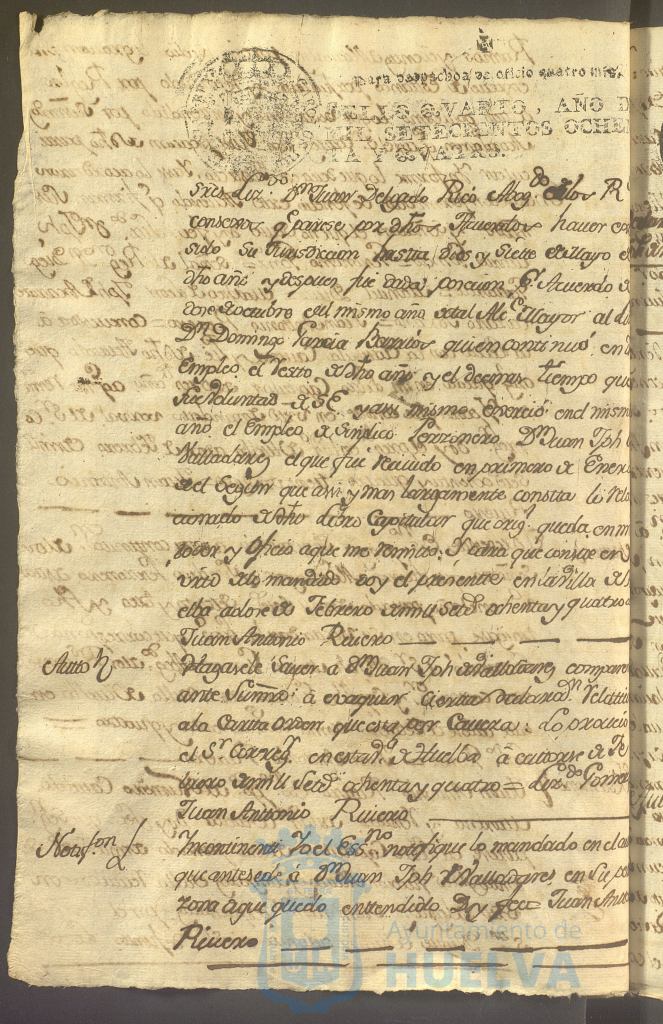 Para despachos de oficio quatro mrs.
SELLO QVARTO, AÑO D
MIL SETECIENTOS OCHEN
TA Y QVATRO.
Lizdo. Dn. Juan Delgado Rico Abogdo. de los R
consejos q. parese por dhos Acuerdos haver
sido su Jurisdiccion hasta dies y siete de Mayo
dho año y despues fue dada, por Acuerdo
dose de octubre del mismo año de tal Alce. Mayor al
Dn. Domingo Garcia Barrios quien continuó en
Empleo el resto de dho año y el demas tiempo que
fue voluntad de S.E. y assi mismo exerció en el mismo
año el Empleo de Sindico Perzonero Dn. Juan Jph
Valladares el que fue reciuido en primero de Enero
de el Segun que assi y mas largamente consta lo rela
cionado de dho Libro Capitular que origl. queda en m
Poder y Oficio aque me remito: Y para que conste en
virtd. de lo mandado doy el presente en la Villa de
elba a dose de Febrero de mill Setes. ochenta y quatro
Juan Antonio Riuero
Auto Hagasele saver à Dn. Juan Jph de Valladares compare
ante Su mrd. à evaquar cierta declarazn. relatiu
a la Carta orden que esta por Cavesa: Lo proveio
el Sr. Correxr. en esta va. de Huelba à catorse de Fe
brero de mill Setes. ochenta y quatro = Lizdo. Gomez
Juan Antonio Riuero
Notifon. Incontinenti Yo el Essno. notifique lo mandado en el au
que antesede à Dn. Juan Jph Valladares en su per
zona de que quedo entendido Doy fee Juan Anto
Riuero
Ayuntamiento de
HUELVA